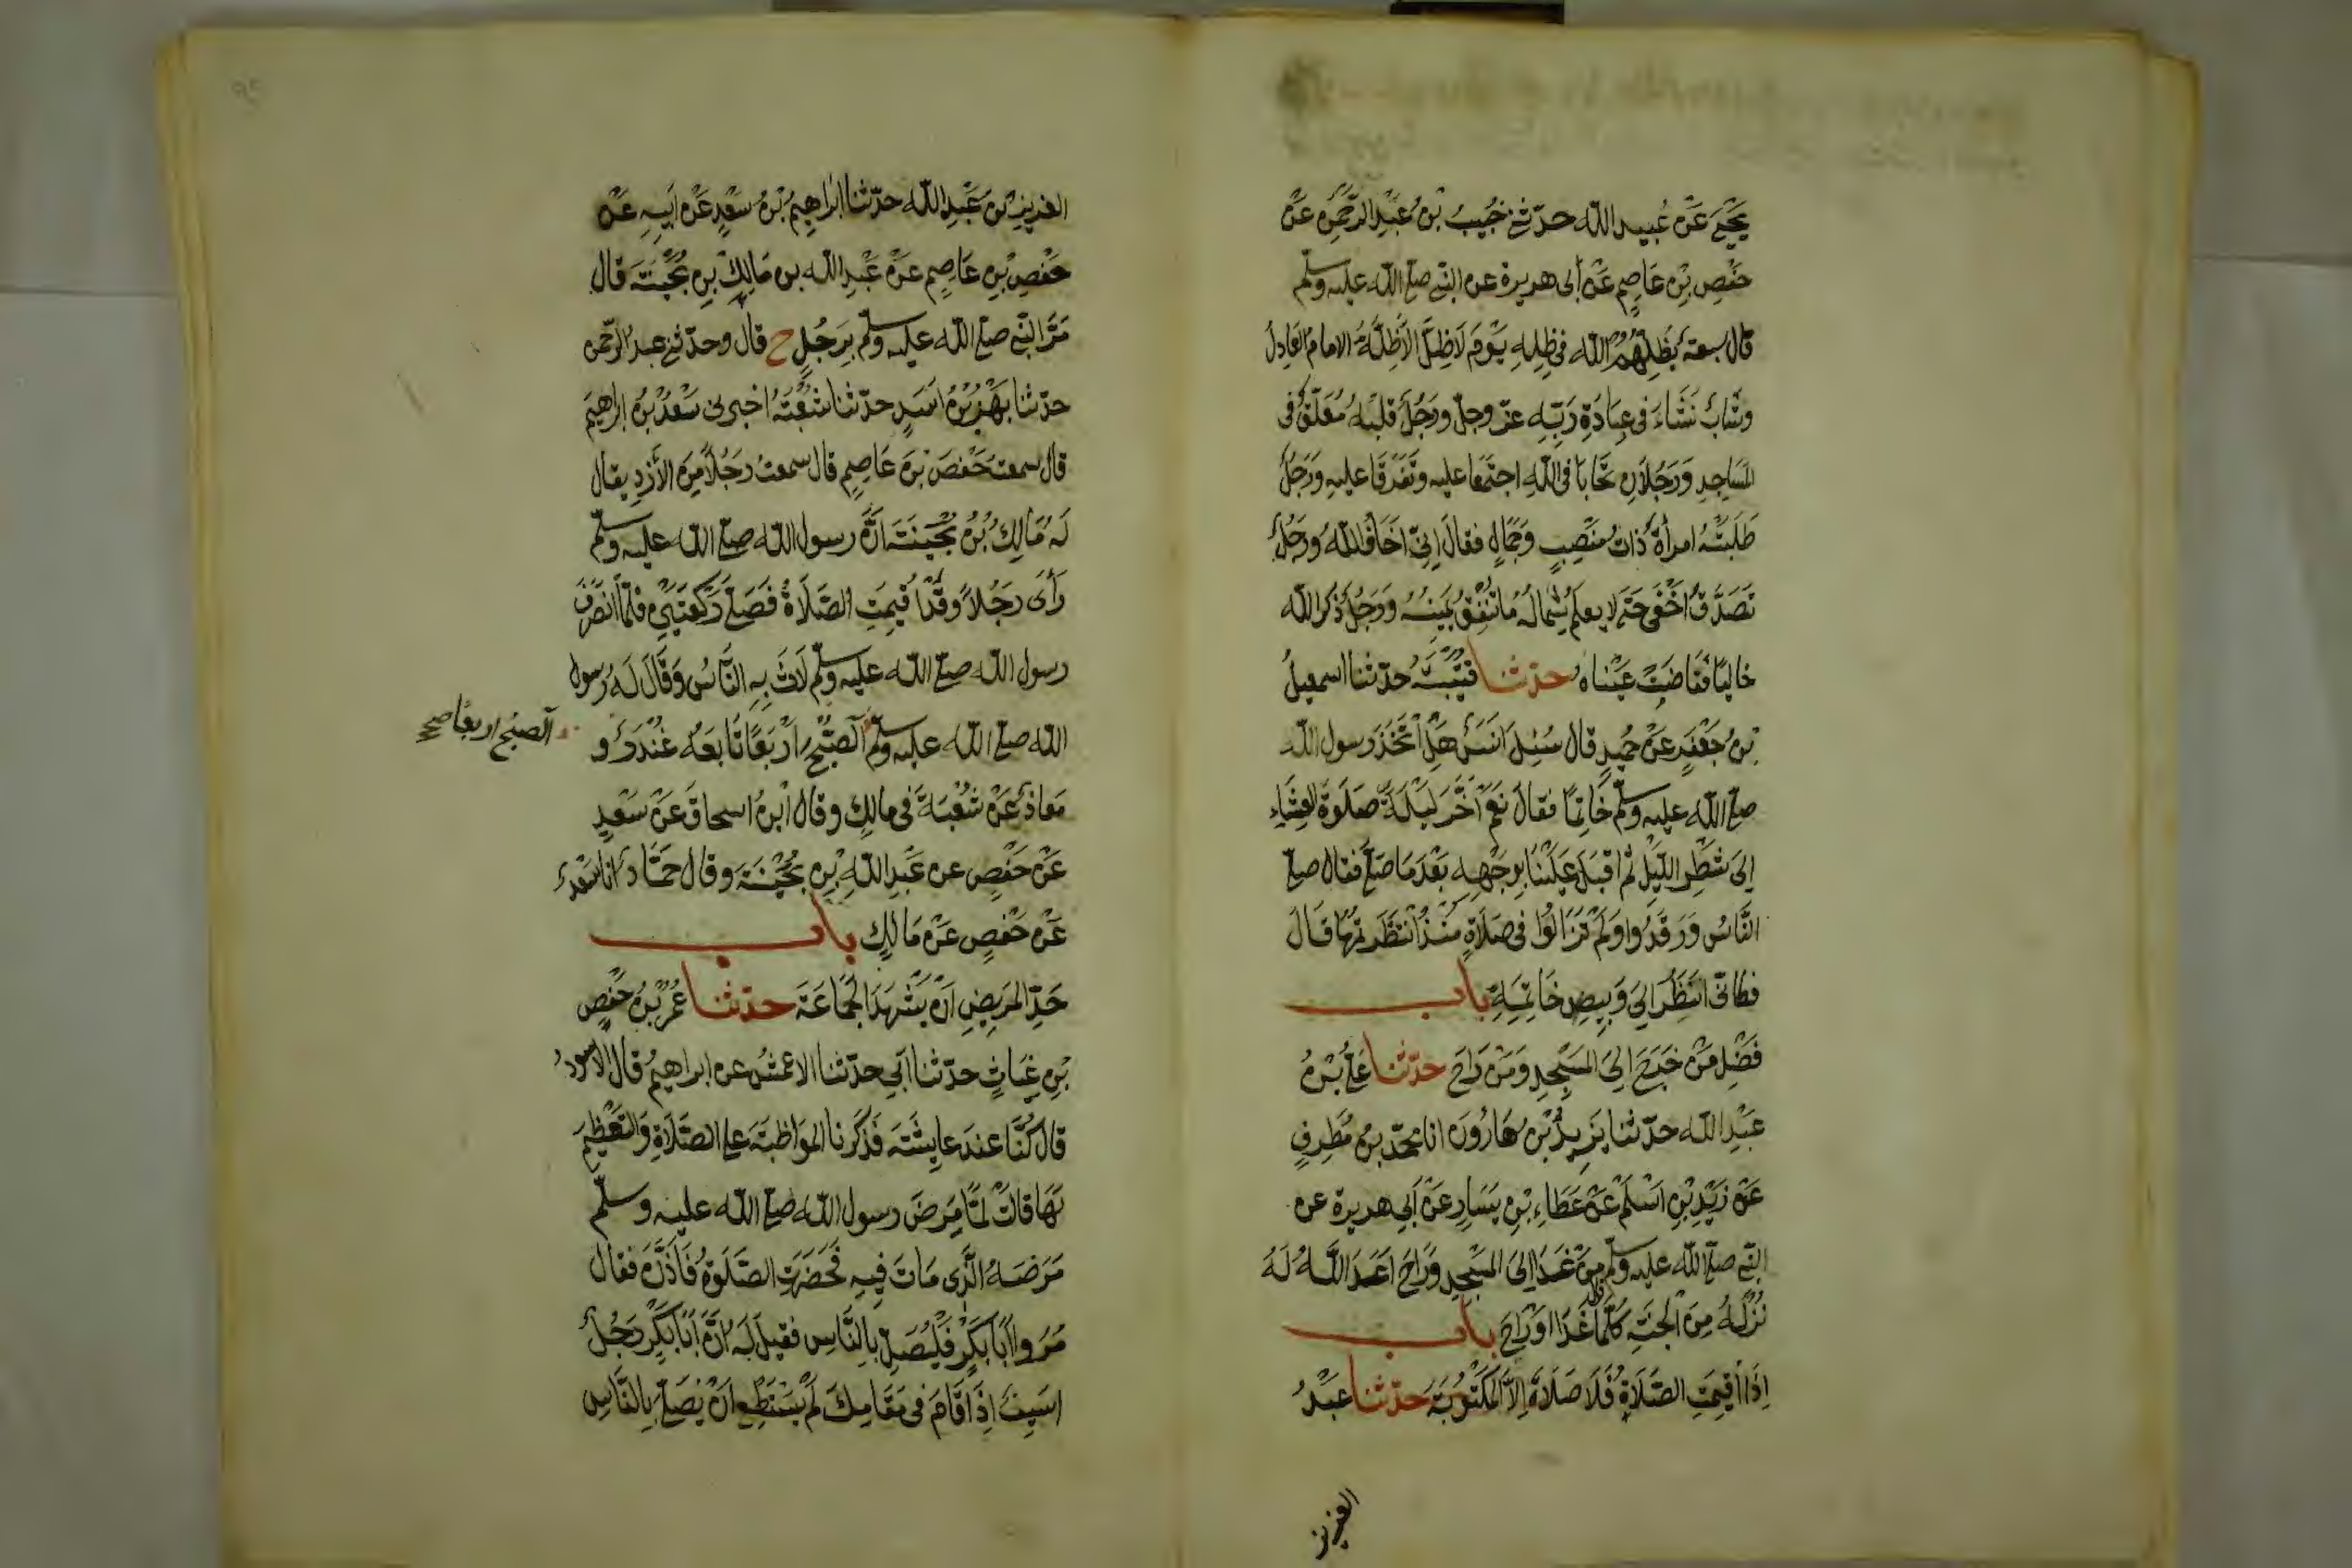 يَحْيَى عَنْ عُبيد الله حدّثني خُبَيبُ بْنُ عَبْدِ الرَّحْمٰنِ عَنْ
حَفْصِ بْنِ عَاصِمٍ عَنْ أبى هريرة عن النبي صلى الله عليه وسلم
قال سبعة يُظِلُّهُمُ الله فى ظِلِهِ يَوْمَ لَا ظِلَّ الاَّ ظِلُّهُ الامام العَادِلُ
وشَابٌّ نَشَاءَ فى عِبَادَةِ رَبِّهِ عز وجل ورَجُلٌ قلبُهُ مُعَلَّقٌ فى
المَسَاجِدِ وَرَجُلَانِ تَحَابَّا فى اللهِ اجتَمَعَا عليه وتَفَرَّقَا عليه وَرَجُلٌ
طَلَبَتْهُ امرأةٌ ذاتُ مَنْصِبٍ وَجَمَالٍ فقالَ إنّى أخَافُ الله ورَجُلٌ
تَصَدَّقَ أخْفَى حَتَى لا يعلَمَ شِمالُهُ ما تُنْفِقُ يَمِينُهُ وَرَجُلٌ ذكر الله
خَاليًا ففَاضَتْ عَيْنَاهُ حدّثنا قتَيْبَةُ حدّثنا اسمعيلُ
بْنُ جَعْفَرٍ عَنْ حُمَيدٍ قال سُئِلَ أنَسٌ هَلْ اتَّخَذَ رسول الله
صلى الله عليه وسلم خَاتِمًا فقالَ نَعَمْ أخَّرَ لَيْلَةً صَلٰوةَ العِشَاءِ
إلى شَطْرِ اللَّيْلِ ثُمَّ اقبَلَ عَلَيْنَا بِوَجْهِهِ بَعْدَ مَا صَلَّى فقال صلى
النَّاسُ وَرَقَدُوا وَلَمْ تَزَالُوا فى صَلَاةٍ مُنْذُ انتَظَرْتُمُوهَا قَالَ
فكانّى انظُرُ إلى وَبِيصِ خَاتِمِهِ باب
فَضْلِ مَنْ خَرَجَ إلى المَسْجِدِ وَمَنْ رَاحَ حدّثنا عَلىُّ بْنُ
عَبْدِ الله حدّثنا يَزِيدُ بْنُ هَارُونَ انا محمّد بنُ مُطَرِّفٍ
عَنْ زَيْدِ بْنِ أسْلَمَ عَنْ عَطَاءِ بْنِ يَسَارٍ عَنْ أبى هريرة عن
النبي صلى الله عليه وسلم مَنْ غَدَا إلى المَسْجِدِ وَرَاحَ اَعَدَّ اللهُ لَهُ
نُزُلَهُ مِنَ الجنّةِ كُلَّمَا غَدَا اوْ رَاحَ باب
إذَا أقِيمَتِ الصَّلَاةُ فَلَا صَلَاةَ إلاَّ المَكتُوبَةَ حدّثنا عَبْدُ
العزيز
العزيز بْنُ عَبْدِ الله حدّثنا إبراهِيمُ بْنُ سَعْدٍ عَنْ أبِيهِ عَنْ
حَفْصِ بْنِ عَاصِمٍ عَنْ عَبْدِ الله بن مَالِكِ بْنِ بُحَيْنَةَ قال
مَرَّ النبي صلى الله عليه وسلم بِرَجُلٍ ح قال وحدّثنى عبدُ الرّحمن
حدّثنا بَهْزُ بْنُ أسَدٍ حدّثنا شُعْبَةُ اخبرنى سَعْدُ بْنُ إبراهِيمَ
قال سمعتُ حَفْصَ بْنَ عَاصِمٍ قال سمعتُ رَجُلًا مِنَ الأزْدِ يقال
لَهُ مَالِكُ بْنُ بُحَيْنَةَ أنَّ رسول الله صلى الله عليه وسلم
رَأى رَجُلاً وقَدْ أقِيمَتِ الصَّلَاةُ فَصَلَّى رَكعَتَيْنِ فلمّا انصَرَفَ
رسول الله صلى الله عليه وسلم لَاثَ بِهِ النَّاسُ وَقَالَ لَهُ رَسول
الله صلى الله عليه وسلم آلصُّبْحُ أرْبَعًا تَابَعَهُ غُنْدَرٌ و
آلصبْحُ اربعًا صح
مَعَاذٌ عَنْ شُعْبَةَ فى مالِكٍ وقال ابنُ اسحاقَ عَنْ سَعْدٍ
عَنْ حَفْصٍ عن عَبْدِ اللهِ بْنِ بُحَيْنَةَ وقال حَمَّادٌ أنا سَعْدٌ
عَنْ حَفْصٍ عَنْ مَالِكٍ باب
حَدِّ المَرِيضِ أنْ يَشْهَدَ الجَمَاعَةَ حدّثنا عُمَرُ بْنُ حَفْصِ
بْنِ غِيَاثٍ حدّثنا أبى حدّثنا الاعمشُ عن ابراهيمُ قال الاسودُ
قال كُنَّا عندَ عايِشَةَ فَذَكَرْنا المواظبَةَ على الصَّلَاةِ وَالتعْظِيمَ
لَهَا قالتْ لَمَّا مَرِضَ رسول الله صلى الله عليه وسلم
مَرَضَهُ الّذِى مَاتَ فِيهِ فَحَضَرَتِ الصَّلٰوةُ فَأذَّنَ فقال
مُرُوا أبَا بَكرٍ فَلْيُصَلِّ بالنَّاسِ فقيلَ لَهُ إنَّ أبَا بَكْرٍ رَجُلٌ
اسِيفٌ إذَا قَامَ فى مَقَامِكَ لَمْ يَسْتَطِعْ أنْ يُصَلِّىَ بِالنَّاسِ